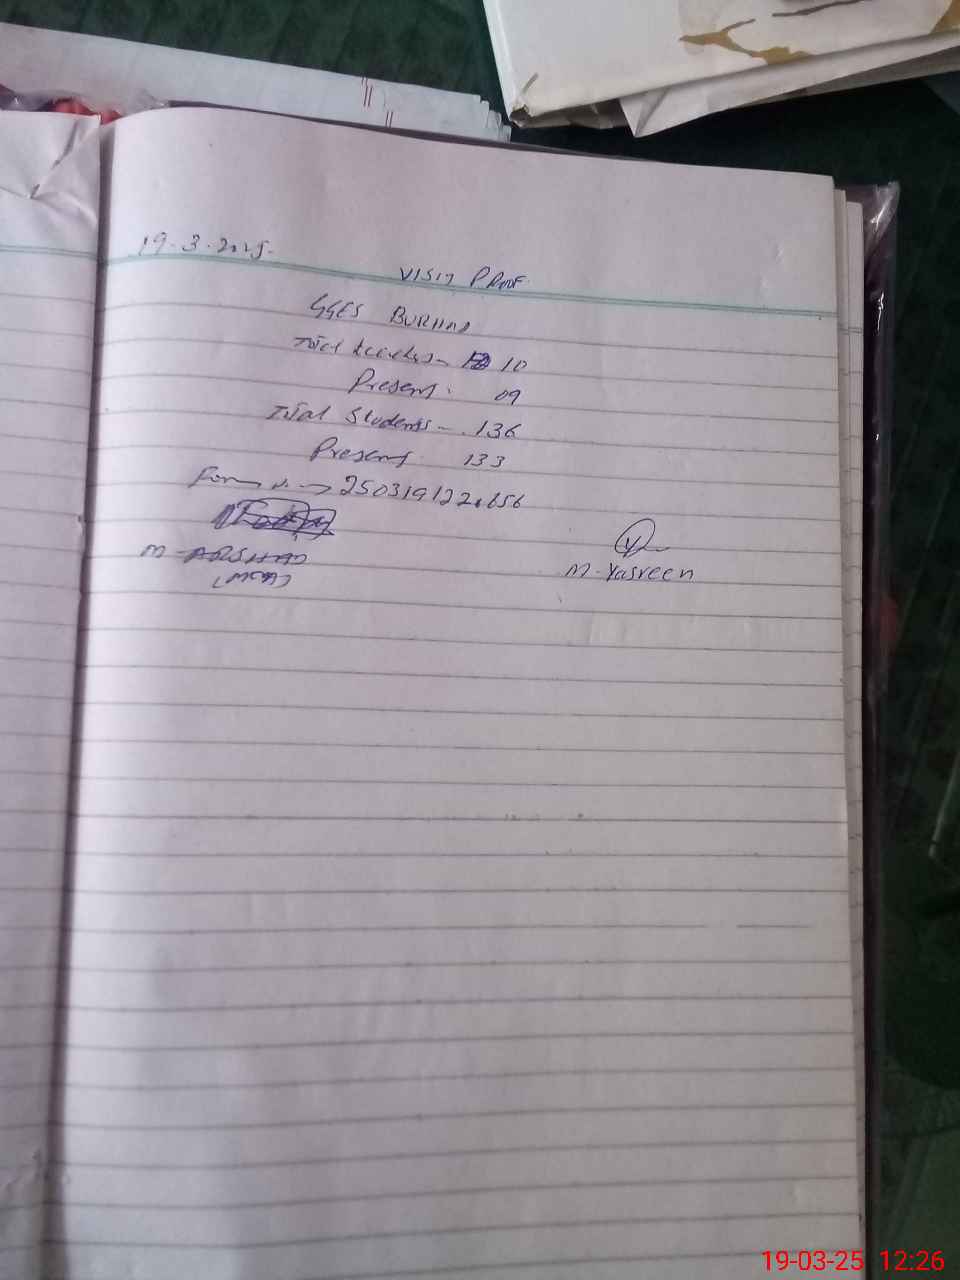 19-3-2025-
VISIT PROOF
GGES BURHAN
Total teachers - 10
Present - 09
Total Students - 136
Present 133
Form No →
M- ARSHAD
(MEA)
M-Yasreen
19-03-25 12:26